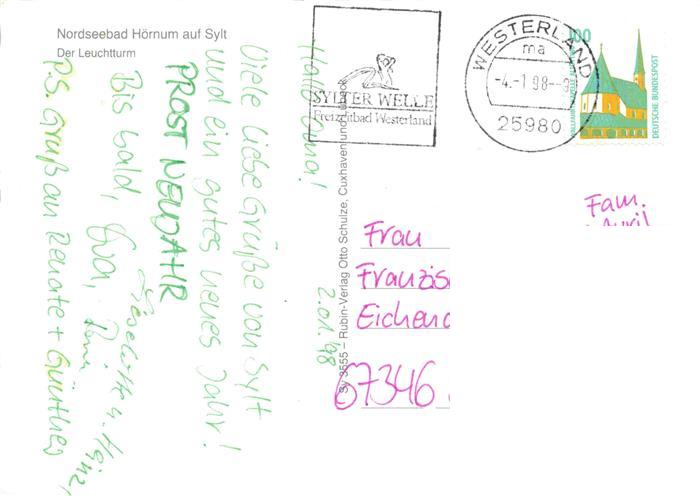 Nordseebad Hörnum auf Sylt
Der Leuchtturm
Hallo Oma!
2.01.98
Viele liebe Grüße von Sylt
und ein gutes neues Jahr!
PROST NEUJAHR
Bis bald, Eva,
Liselotte u. Heinz,
P.S. Gruß an Renate + Günther
Sy 3555 – Rubin-Verlag Otto Schulze, Cuxhaven und
SYLTER WELLE
Freizeitbad Westerland
WESTERLAND
ma
-4.-1.98--
25980
100
DEUTSCHE BUNDESPOST
Fam.
Frau
Franzis
Eichen
67346